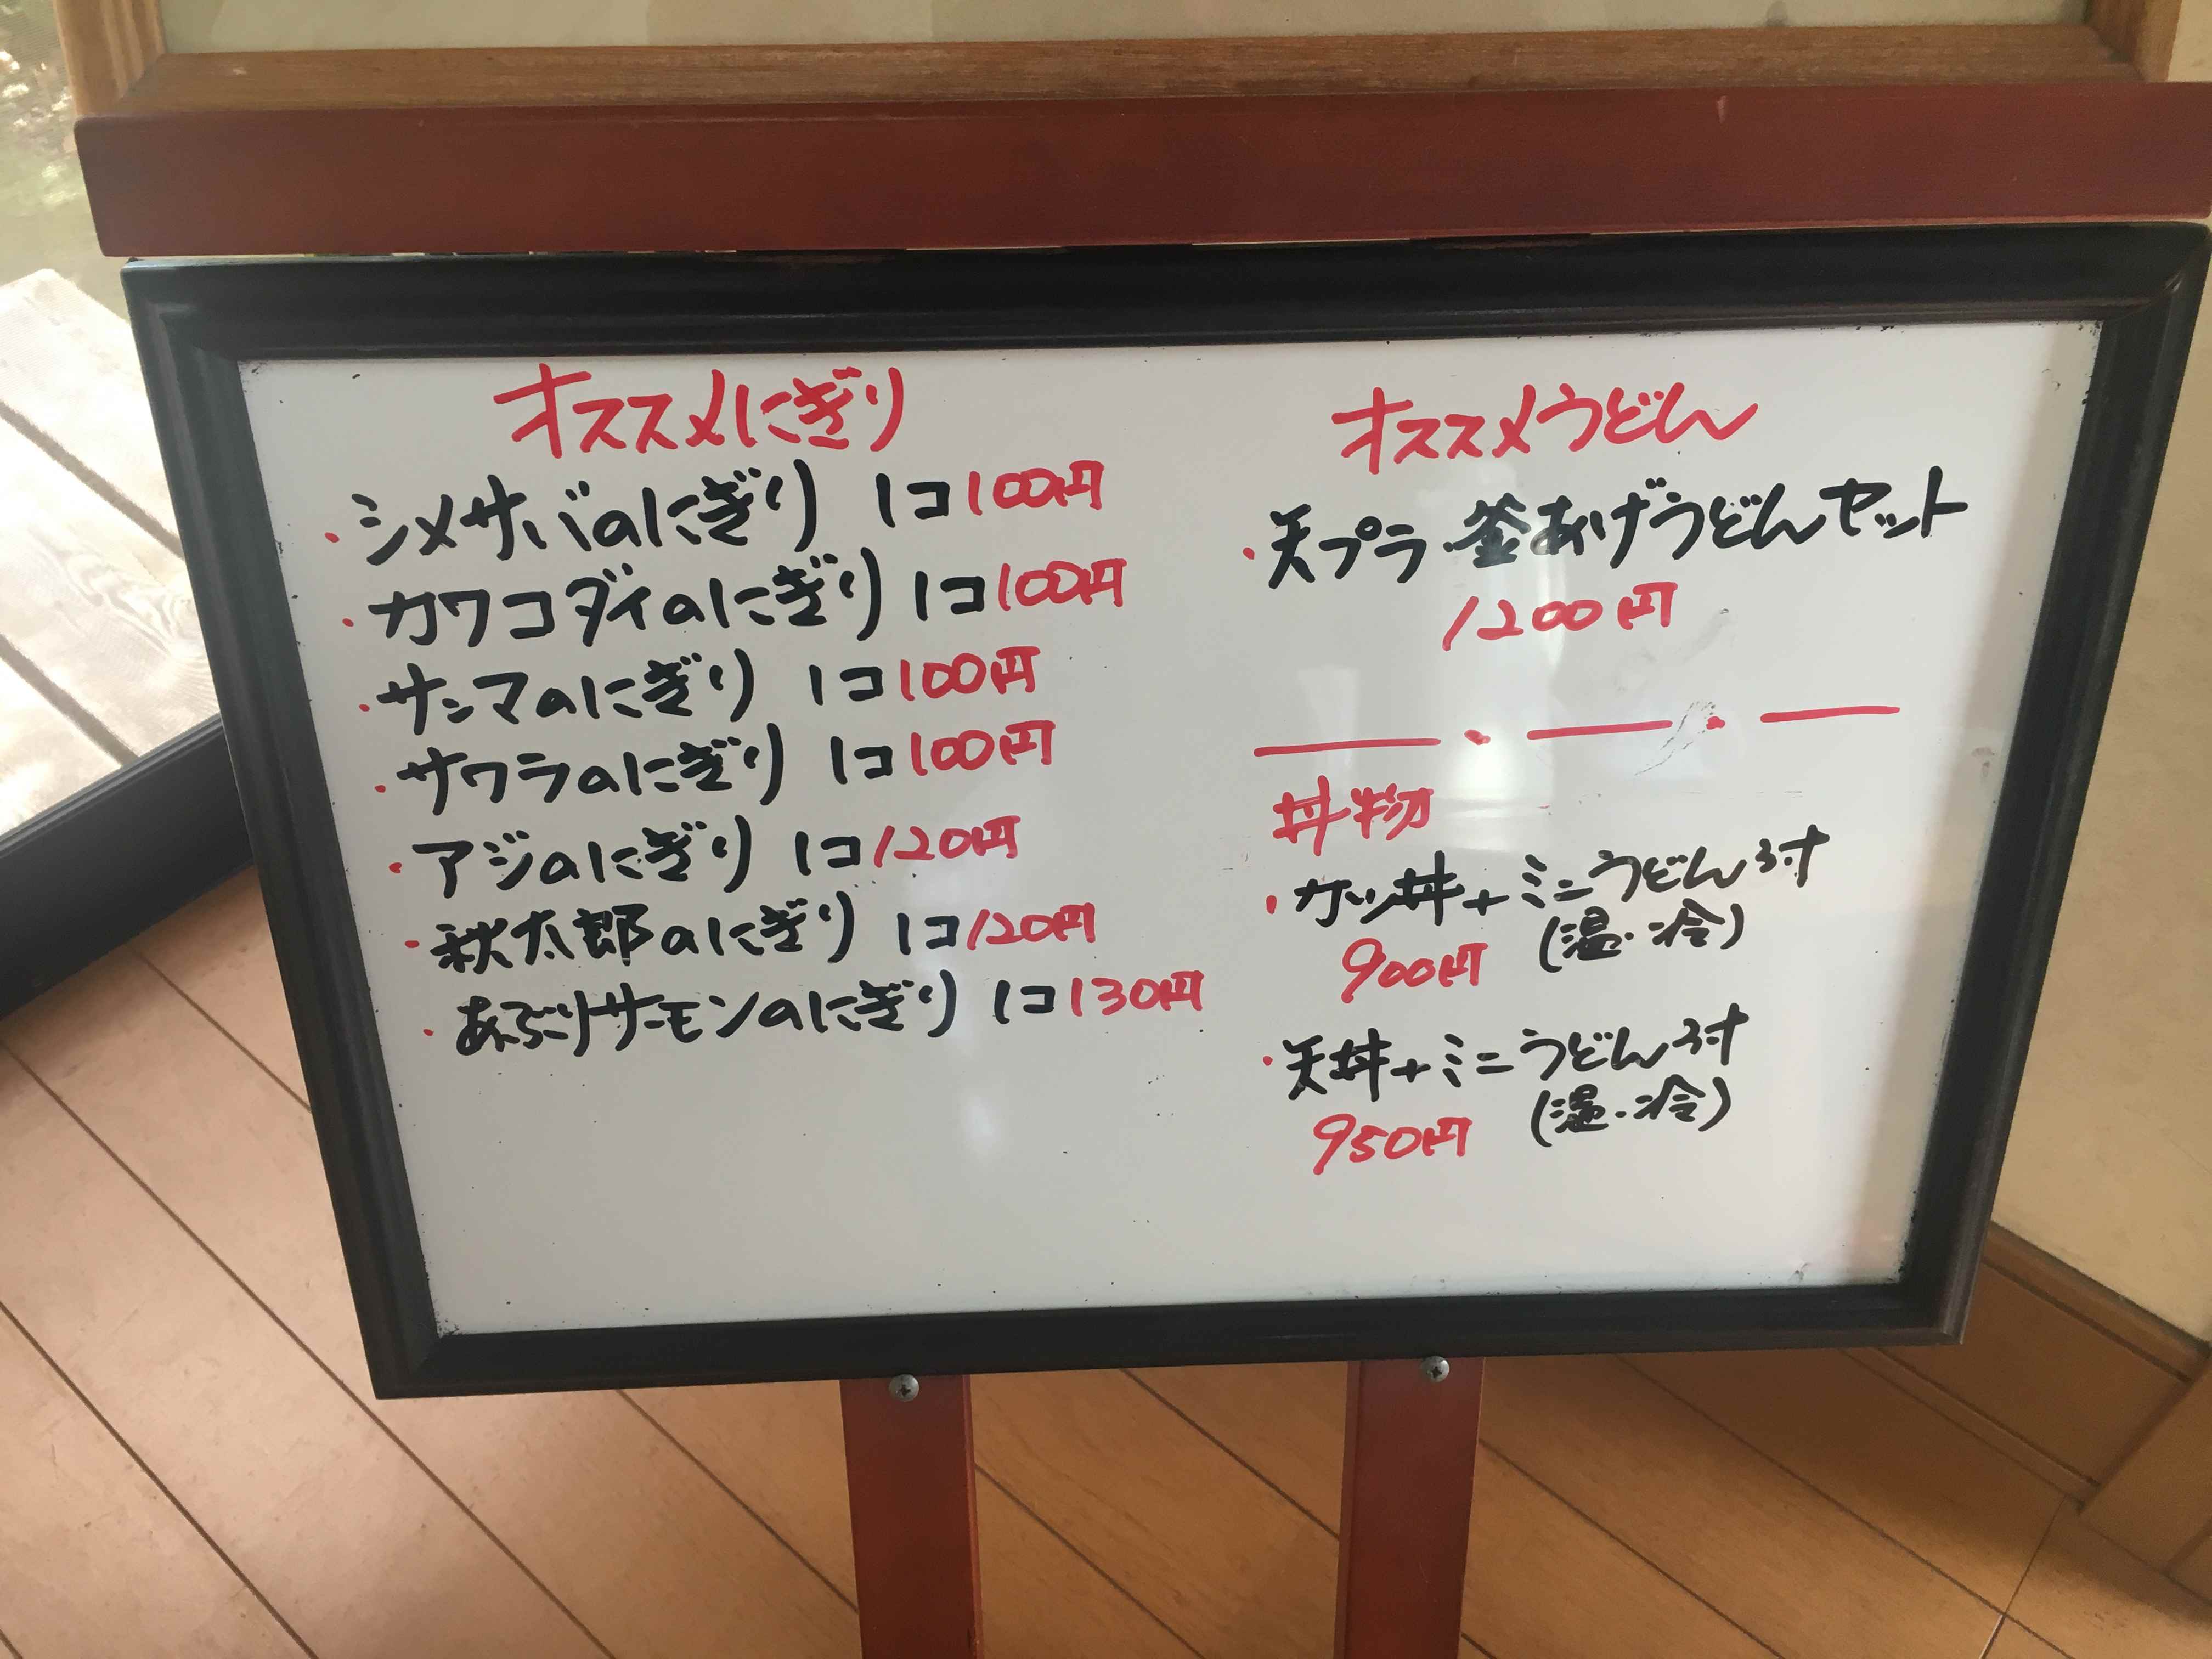 オススメにぎり
・シメサバのにぎり 1コ100円
・カワコダイのにぎり 1コ100円
・サンマのにぎり 1コ100円
・サワラのにぎり 1コ100円
・アジのにぎり 1コ120円
・秋太郎のにぎり 1コ120円
・あぶりサーモンのにぎり 1コ130円
オススメうどん
・天プラ・釜あげうどんセット
1200円
丼物
・カツ丼+ミニうどん付
900円 (温・冷)
・天丼+ミニうどん付
950円 (温・冷)